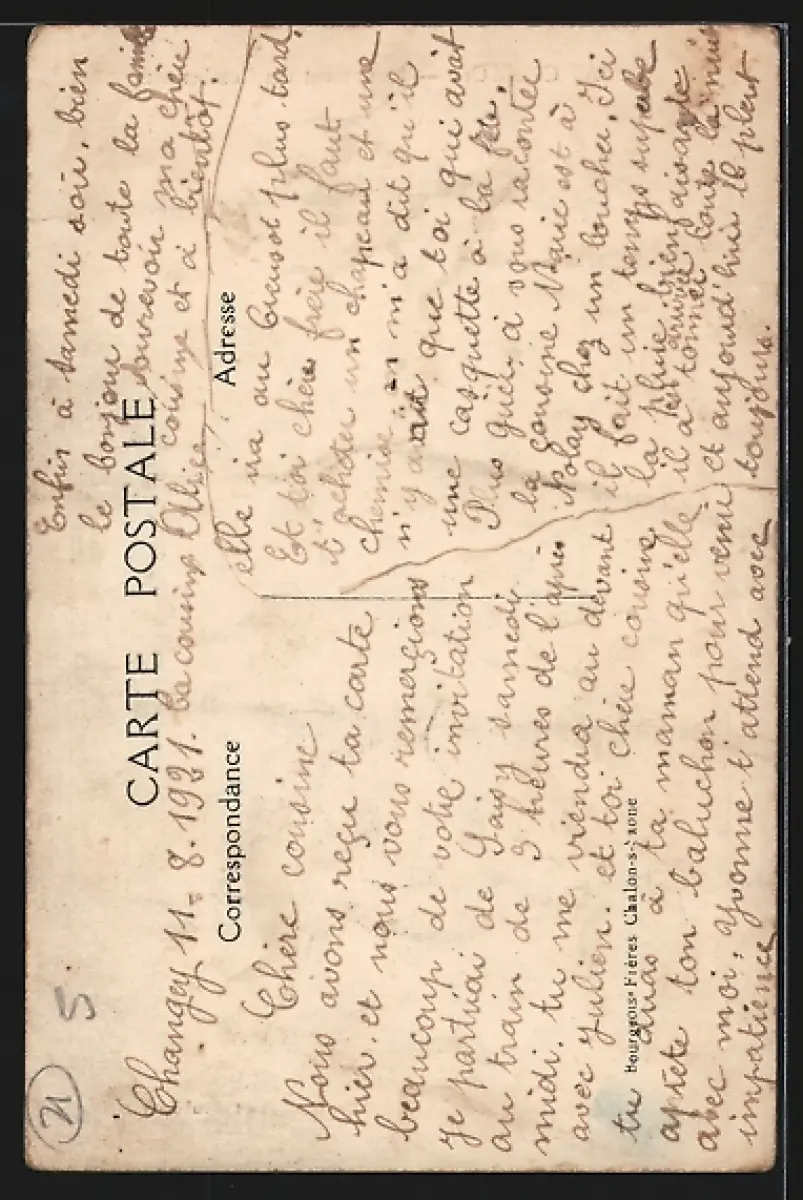 CARTE POSTALE
Correspondance
Adresse
Changey 11-8-1921.
Chère cousine
Nous avons reçu ta carte
hier. et nous vous remerçions
beaucoup de votre invitation
Je partirai de samedi
au train de 3 heures de l'après
midi. tu me viendra au devant
avec Julien. et toi chère cousine
tu diras à ta maman qu'elle
aprète ton baluchon pour venir
avec moi, Yvonne t'attend avec
impatience
elle ira au Creusot plus tard.
Et toi cher frère il faut
t'acheter un chapeau et une
chemise m'a dit qu'il
n'y avait que toi qui avait
une casquette à la fête.
Plus guère à vous raconter
la cousine Marie est à
Nolay chez un boucher. Ici
il fait un temps superbe
la pluie bien disante
est arrivée
il a tonner toute la nuit
et aujourd'hui il pleut
toujours.
Enfin à samedi soir. bien
le bonjour de toute la famille
au revoir ma chère
cousine et à bientôt.
ta cousine Alice
Bourgeois Frères Chalon-s-Saone
21
5